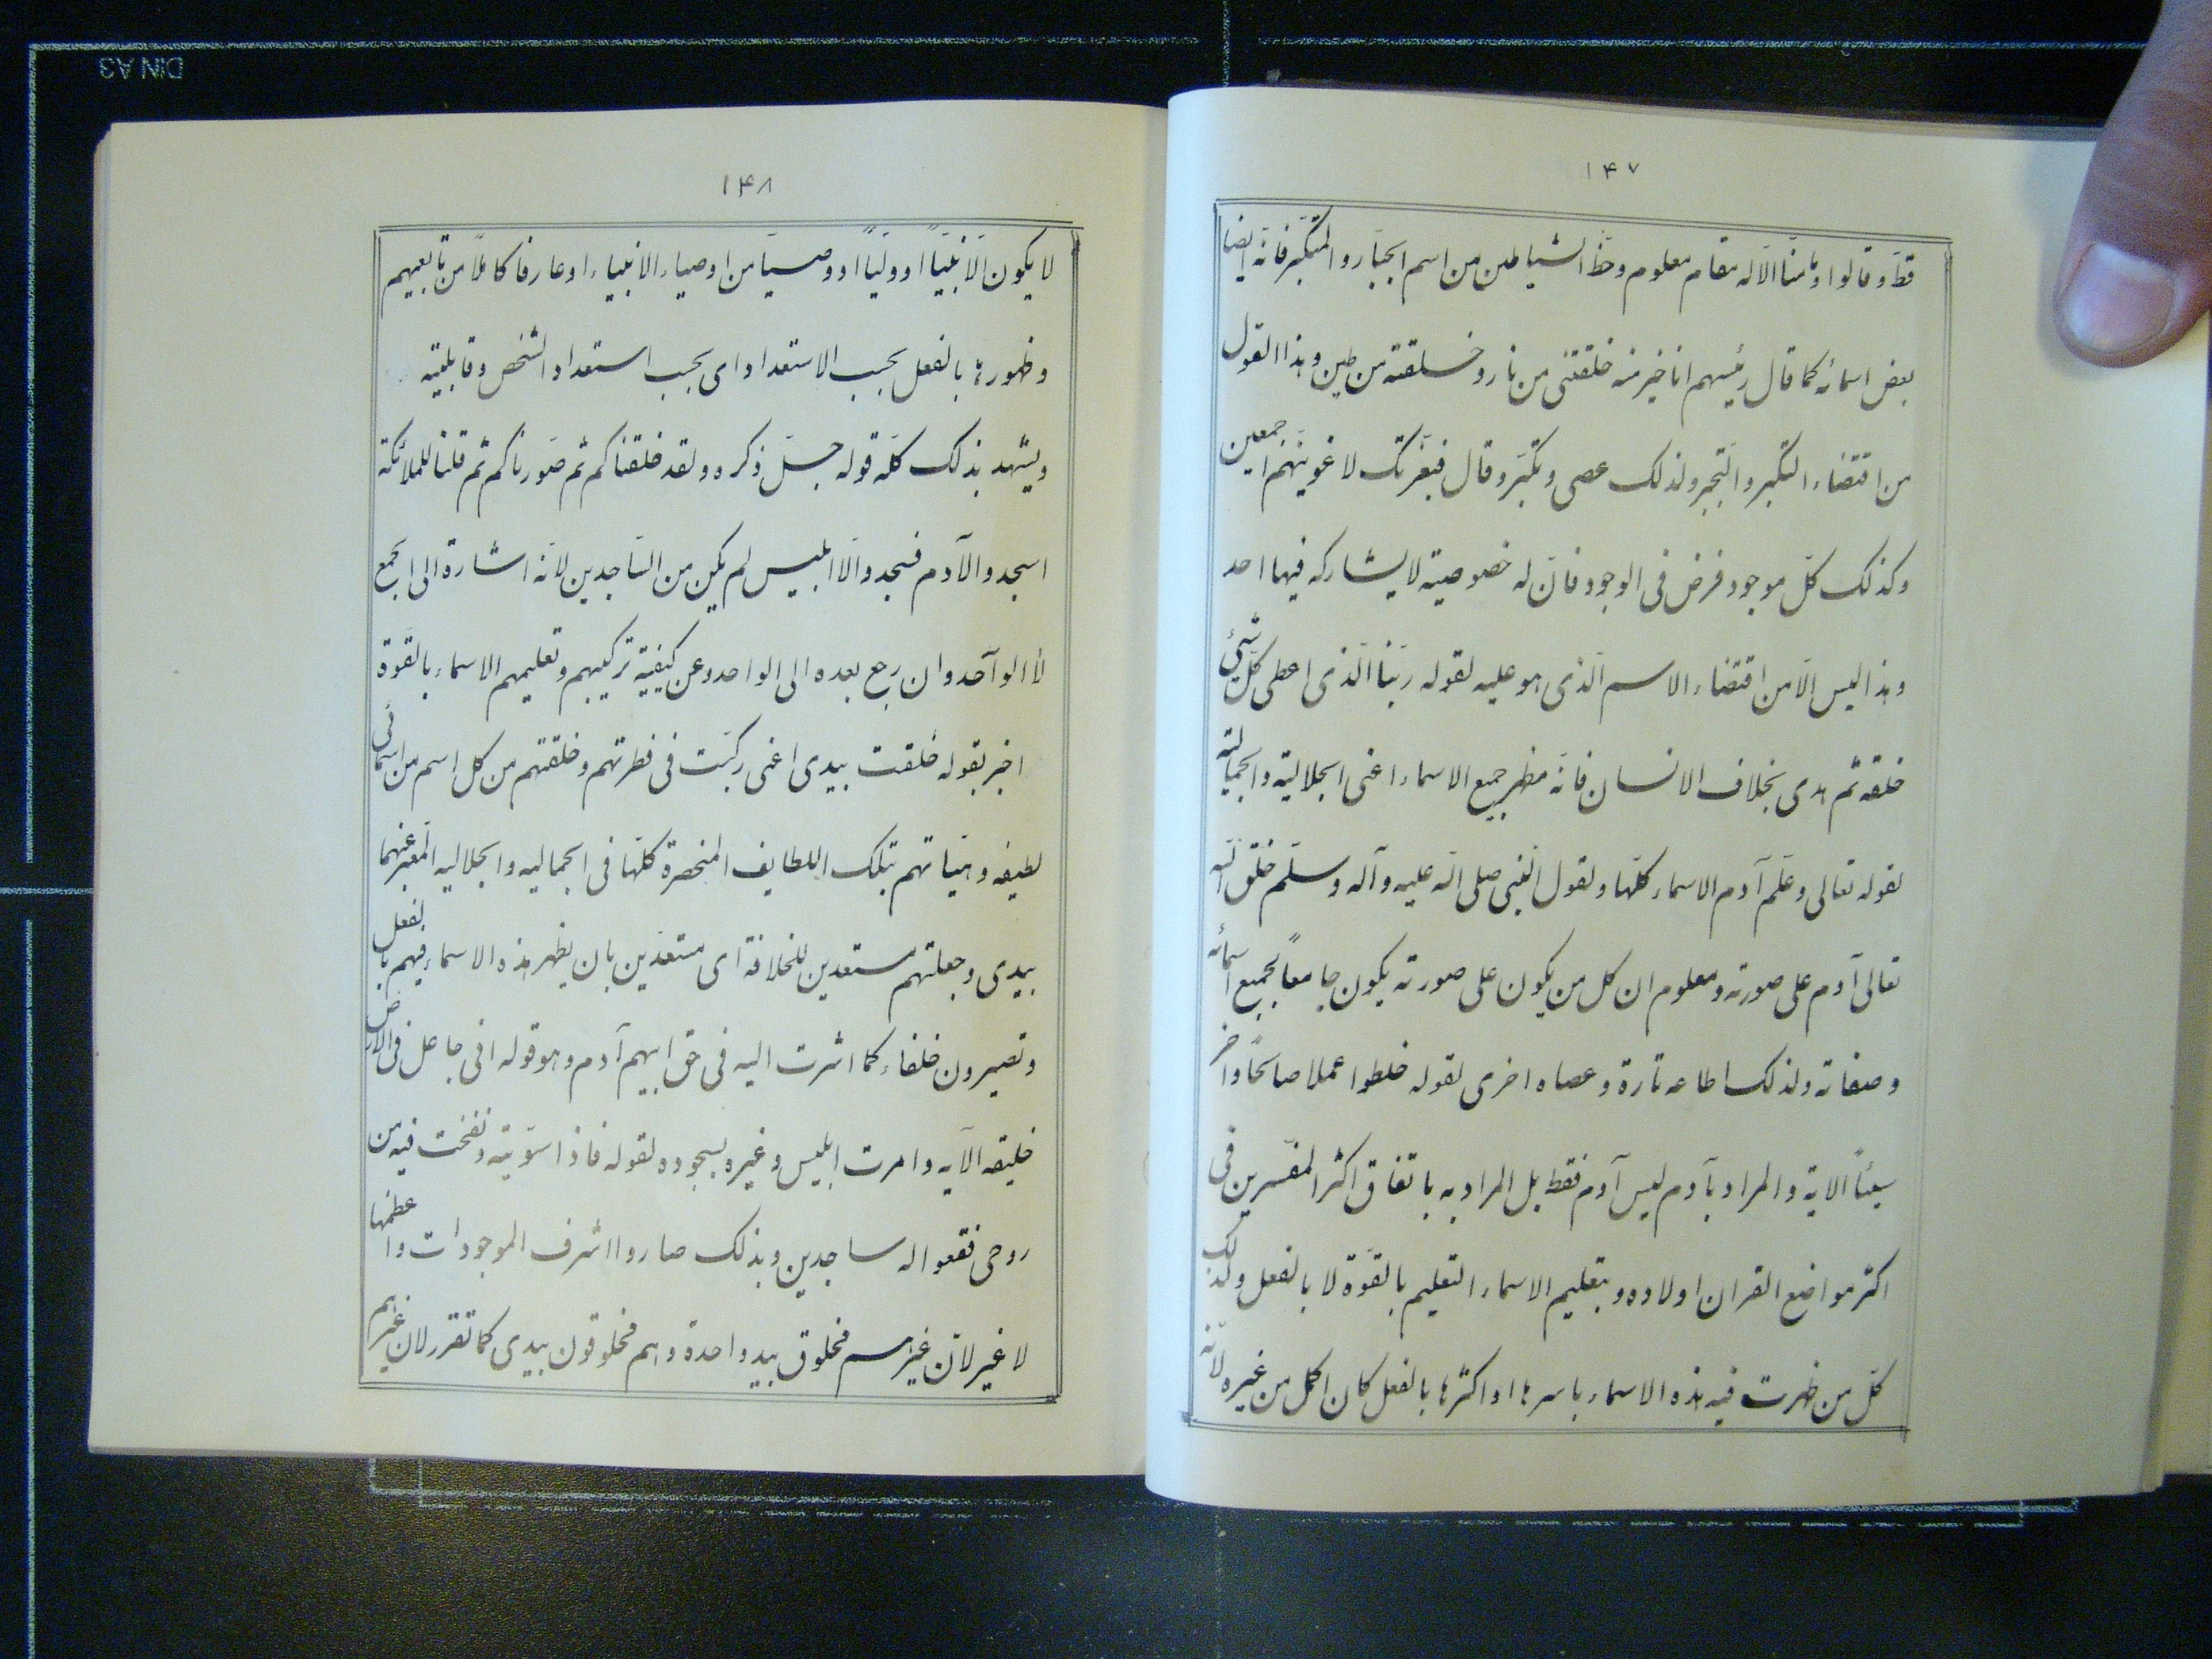 ۱۴۷
قطّ و قالوا و ما منّا الّا له مقام معلوم و حظّ الشیاطین من اسم الجبّار و المتکبّر فانّه ایضا
بعض اسمائه کما قال رئیسهم انا خیر منه خلقتنی من نار و خلقته من طین و هذا القول
من اقتضاء التکبر و التجبر ولذلک عصی و تکبّر و قال فبعزّتک لاغوینّهم اجمعین
وکذلک کلّ موجود فرض فی الوجود فانّ له خصوصیته لا یشارکه فیها احد
و هذا لیس الّا من اقتضاء الاسم الّذی هو علیه لقوله ربّنا الّذی اعطی کلّ شیئی
خلقه ثم هدی بخلاف الانسان فانّه مظهر جمیع الاسماء اعنی الجلالیة و الجمالیة
لقوله تعالی و علّم آدم الاسماء کلّها و لقول النّبی صلی الله علیه و آله و سلّم خلق الله
تعالی آدم علی صورته و معلوم ان کل من یکون علی صورته یکون جامعاً لجمیع اسمائه
و صفاته ولذلک اطاعه تارة و عصاه اخری لقوله خلطوا عملا صالحًا و آخر
سیئاً الایة و المراد بآدم لیس آدم فقط بل المراد به باتفاق اکثر المفسّرین فی
اکثر مواضع القران اولاده و بتعلیم الاسماء التعلیم بالقوّة لا بالفعل ولذلک
کلّ من ظهرت فیه هذه الاسماء باسرها او اکثرها بالفعل کان اکمل من غیره لانّه
۱۴۸
لا یکون الّا نبیّاً او ولیّاً او وصیّاً من اوصیاء الانبیاء او عارفا کاملًا من تابعیهم
و ظهورها بالفعل بحسب الاستعداد ای بحسب استعداد الشخص و قابلیته
و یشهد بذلک کلّه قوله جلّ ذکره و لقد خلقناکم ثم صوّرناکم ثم قلنا للملائکة
اسجدوا لآدم فسجدوا الّا ابلیس لم یکن من السّاجدین لانّه اشارة الی الجمع
لا الی الواحد و ان رجع بعده الی الواحد و عن کیفیة ترکیبهم و تعلیمهم الاسماء بالقوّة
اخبر بقوله خلقت بیدی اعنی رکّبت فی فطرتهم و خلقتهم من کل اسم من اسمائی
لطیفه و هیّأتهم بتلک اللطایف المنحصرة کلّها فی الجمالیه و الجلالیه المعبّر عنهما
بیدی و جعلتهم مستعدین للخلافة ای مستعدّین بان یظهر هذه الاسماء فیهم بالفعل
و تصیرون خلفاء کما اشرت الیه فی حق ابیهم آدم و هو قوله انی جاعل فی الارض
خلیقه الآیه و امرت ابلیس و غیره بسجوده لقوله فاذا سوّیته و نفخت فیه من
روحی فقعوا له ساجدین و بذلک صاروا اشرف الموجودات و اعظمها
لا غیر لانّ غیرهم مخلوق بید واحدة و هم مخلوقون بیدی کما تقرر لان غیرهم